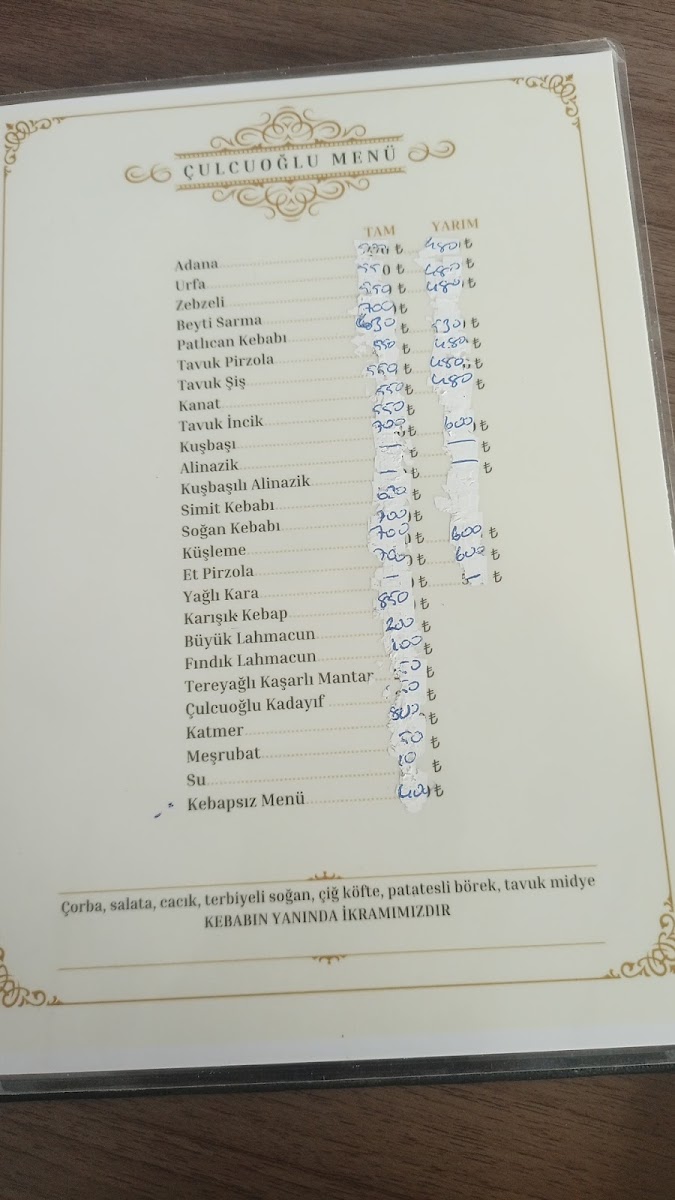 ÇULCUOĞLU MENÜ
TAM YARIM
Adana 550 ₺ 480 ₺
Urfa 550 ₺ 480 ₺
Zebzeli 550 ₺ 480 ₺
Beyti Sarma 700 ₺
Patlıcan Kebabı 630 ₺ 530 ₺
Tavuk Pirzola 550 ₺ 480 ₺
Tavuk Şiş 550 ₺ 480 ₺
Kanat 550 ₺ 480 ₺
Tavuk İncik 550 ₺
Kuşbaşı 700 ₺ 600 ₺
Alinazik - ₺ - ₺
Kuşbaşılı Alinazik - ₺ - ₺
Simit Kebabı ₺
Soğan Kebabı 700 ₺
Küşleme 700 ₺ 600 ₺
Et Pirzola 700 ₺ 600 ₺
Yağlı Kara - ₺ - ₺
Karışık Kebap 850 ₺
Büyük Lahmacun 200 ₺
Fındık Lahmacun 100 ₺
Tereyağlı Kaşarlı Mantar ₺
Çulcuoğlu Kadayıf ₺
Katmer ₺
Meşrubat 50 ₺
Su 10 ₺
Kebapsız Menü 400 ₺
Çorba, salata, cacık, terbiyeli soğan, çiğ köfte, patatesli börek, tavuk midye
KEBABIN YANINDA İKRAMIMIZDIR